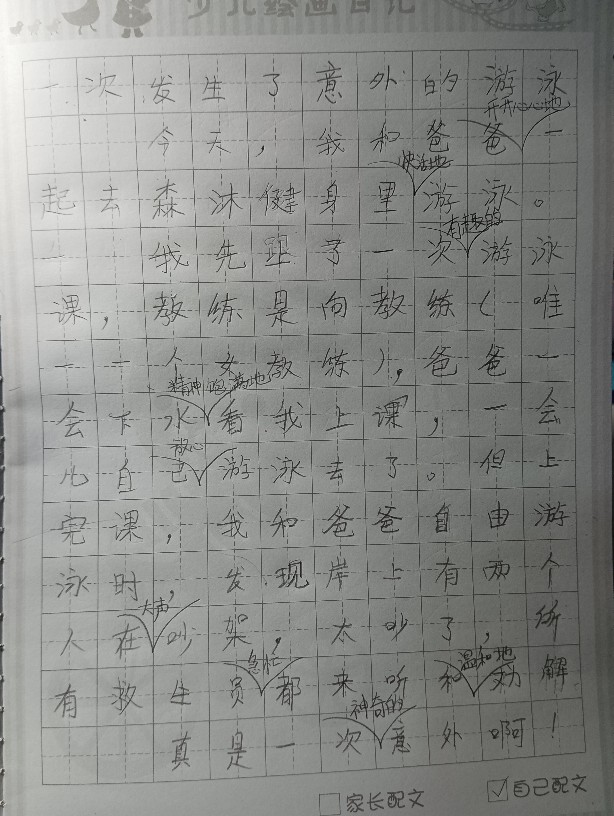 少儿绘画日记
一次发生了意外的游泳
开开心心地
今天，我和爸爸一
快活地
起去森沐健身里游泳。
有趣的
我先跟了一次游泳
课，教练是向教练（唯
一一人女教练），爸爸一
精神饱满地
会下水看我上课，一会
放心
儿自己游泳去了。但上
完课，我和爸爸自由游
泳时，发现岸上有两个
大声
人在吵架，太吵了，所
急忙
温和地
有救生员都来听和劝解
神奇的
真是一次意外啊！
家长配文
自己配文